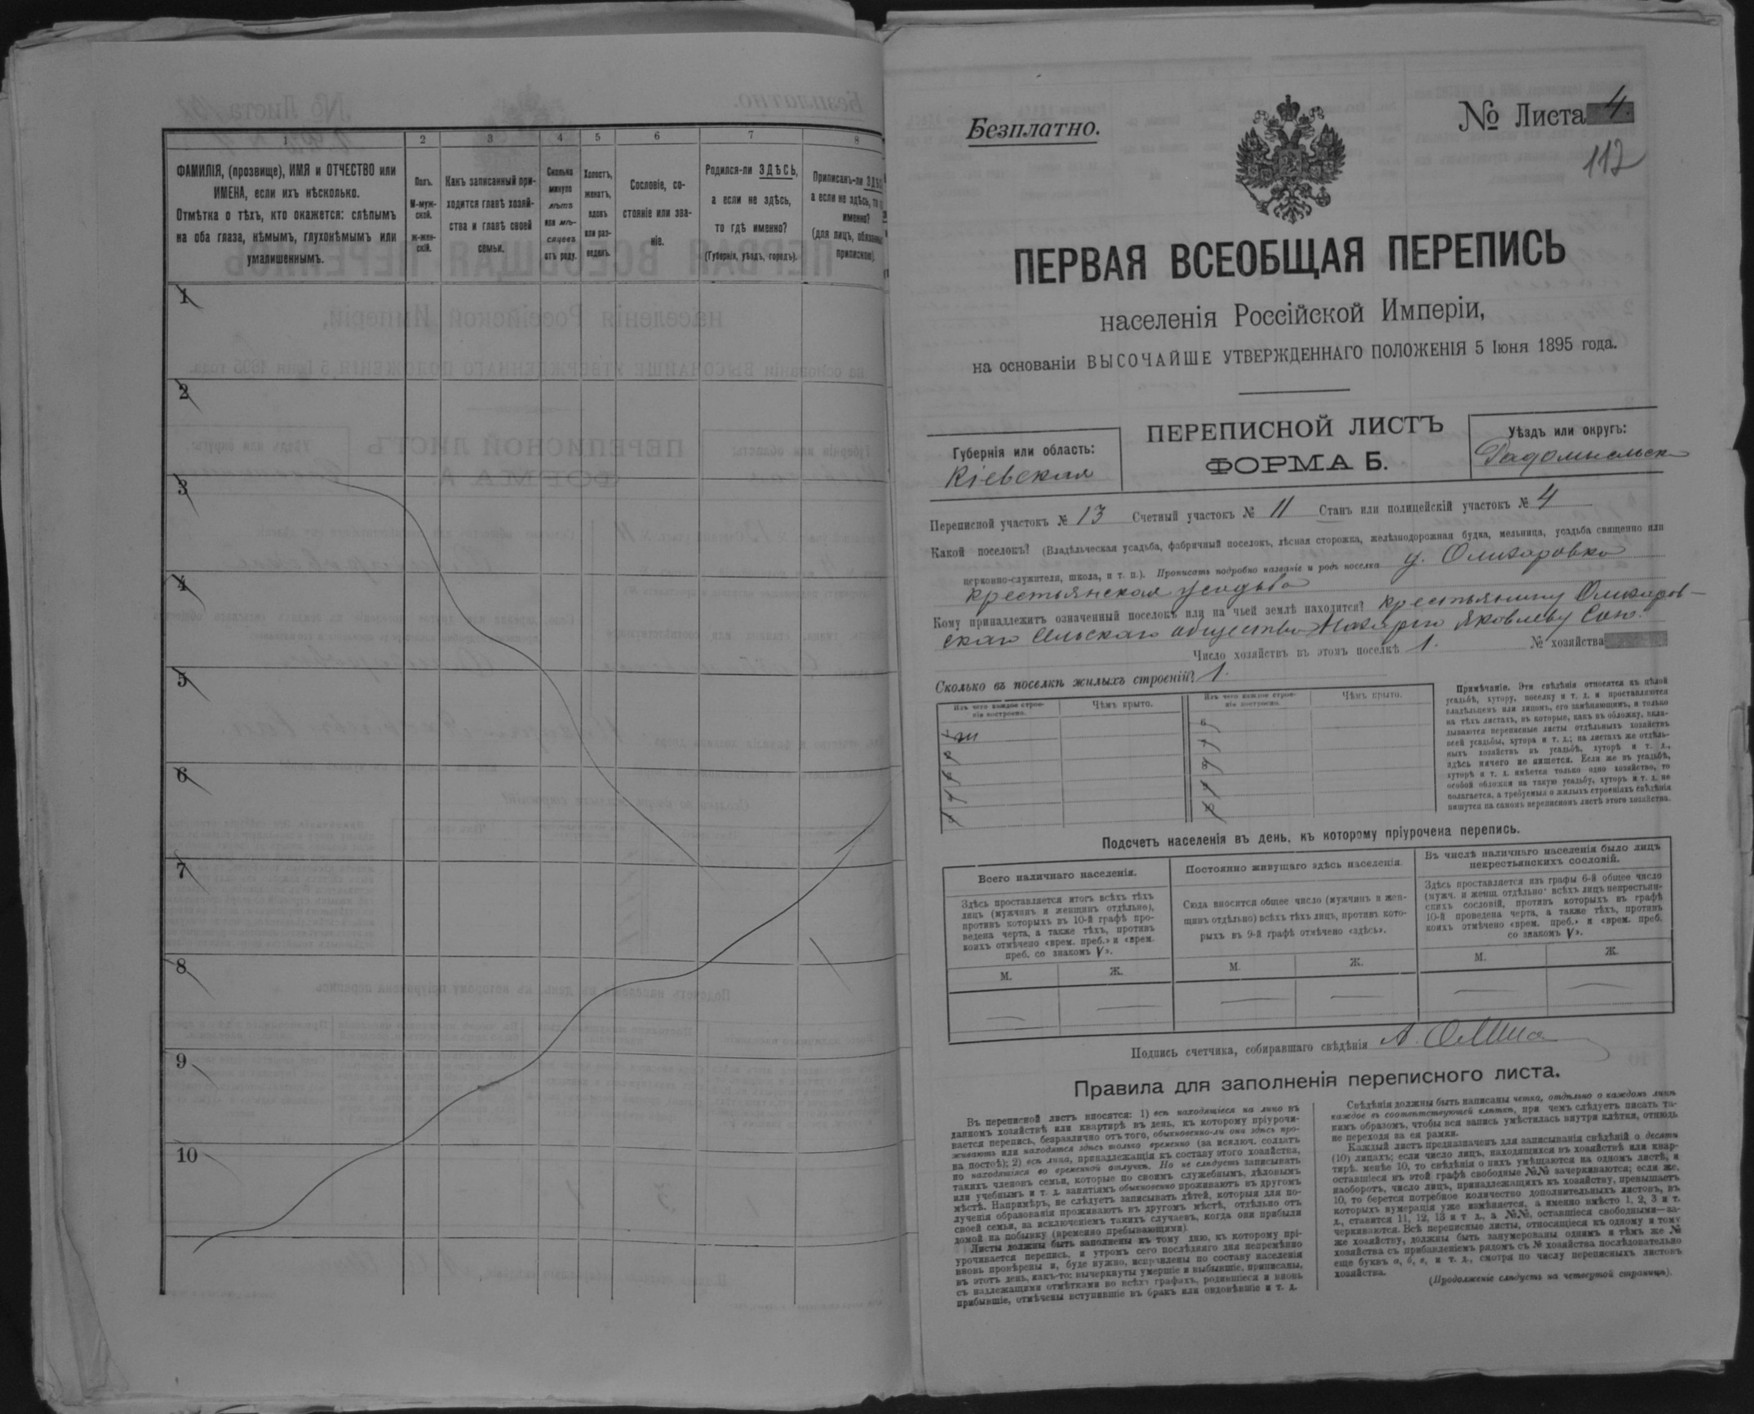 1 2 3 4 5 6 7 8
ФАМИЛІЯ, (прозвище), ИМЯ и ОТЧЕСТВО или
ИМЕНА, если ихъ нѣсколько.
Отмѣтка о тѣхъ, кто окажется: слѣпымъ
на оба глаза, нѣмымъ, глухонѣмымъ или
умалишеннымъ.
Полъ.
М-муж-
ской.
ж-жен-
скій.
Какъ записанный при-
ходится главѣ хозяй-
ства и главѣ своей
семьи.
Сколько
минуло
лѣтъ
или мѣ-
сяцевъ
отъ роду.
Холостъ,
женатъ,
вдовъ
или раз-
веденъ.
Сословіе, со-
стояніе или зва-
ніе.
Родился-ли ЗДѢСЬ,
а если не здѣсь,
то гдѣ именно?
(Губернія, уѣздъ, городъ).
Приписанъ-ли
а если не здѣсь, то
именно?
(для лицъ,
1
2
3
4
5
6
7
8
9
10
Безплатно.
№ Листа 4.
112
ПЕРВАЯ ВСЕОБЩАЯ ПЕРЕПИСЬ
населенія Россійской Имперіи,
на основаніи ВЫСОЧАЙШЕ УТВЕРЖДЕННАГО ПОЛОЖЕНІЯ 5 Іюня 1895 года.
Губернія или область:
Кіевская
ПЕРЕПИСНОЙ ЛИСТЪ
ФОРМА Б.
Уѣздъ или округъ:
Радомысльск
Переписной участокъ № 13 Счетный участокъ № 11 Станъ или полицейскій участокъ № 4
Какой поселокъ? (Владѣльческая усадьба, фабричный поселокъ, лѣсная сторожка, желѣзнодорожная будка, мельница, усадьба священно или
церковно-служителя, школа, и т. п.). Прописать подробно названіе и родъ поселка у. Олизаровка
крестьянская усадьба
Кому принадлежитъ означенный поселокъ или на чьей землѣ находится? крестьянину Олизаров-
скаго сельскаго общества Макарію Яковлеву
Число хозяйствъ въ этомъ поселкѣ 1. № хозяйства
Сколько въ поселкѣ жилыхъ строеній? 1.
Изъ чего каждое строе-
ніе построено.
Чѣмъ крыто.
Изъ чего каждое строе-
ніе построено.
Чѣмъ крыто.
Примѣчаніе. Эти свѣдѣнія относятся къ цѣлой
усадьбѣ, хутору, поселку и т. д. и проставляются
владѣльцемъ или лицомъ, его замѣняющимъ, и только
на тѣхъ листахъ, въ которые, какъ въ обложку, вкла-
дываются переписные листы отдѣльныхъ хозяйствъ
всей усадьбы, хутора и т. д.; на листахъ же отдѣль-
ныхъ хозяйствъ въ усадьбѣ, хуторѣ и т. д.,
здѣсь ничего не пишется. Если же въ усадьбѣ,
хуторѣ и т. д. имѣется только одно хозяйство, то
особой обложки на такую усадьбу, хуторъ и т. д. не
полагается, а требуемыя о жилыхъ строеніяхъ свѣдѣнія
пишутся на самомъ переписномъ листѣ этого хозяйства.
Подсчетъ населенія въ день, къ которому пріурочена перепись.
Всего наличнаго населенія.
Здѣсь проставляется итогъ всѣхъ тѣхъ
лицъ (мужчинъ и женщинъ отдѣльно),
противъ которыхъ въ 10-й графѣ про-
ведена черта, а также тѣхъ, противъ
коихъ отмѣчено «врем. преб.» и «врем.
преб. со знакомъ V».
М. Ж.
Постоянно живущаго здѣсь населенія.
Сюда вносится общее число (мужчинъ и жен-
щинъ отдѣльно) всѣхъ тѣхъ лицъ, противъ кото-
рыхъ въ 9-й графѣ отмѣчено «здѣсь».
М. Ж.
Въ числѣ наличнаго населенія было лицъ
некрестьянскихъ сословій.
Здѣсь проставляется изъ графы 6-й общее число
(мужч. и женщ. отдѣльно) всѣхъ лицъ некрестьян-
скихъ сословій, противъ которыхъ въ графѣ
10-й проведена черта, а также тѣхъ, противъ
коихъ отмѣчено «врем. преб.» и «врем. преб.
со знакомъ V».
М. Ж.
Подпись счетчика, собиравшаго свѣдѣнія А.
Правила для заполненія переписного листа.
Въ переписной листъ вносятся: 1) всѣ находящіеся на лицо въ
данномъ хозяйствѣ или квартирѣ въ день, къ которому пріурочи-
вается перепись, безразлично отъ того, обыкновенно-ли они здѣсь про-
живаютъ или находятся здѣсь только временно (за исключ. солдатъ
на постоѣ); 2) всѣ лица, принадлежащія къ составу этого хозяйства,
но находящіяся во временной отлучкѣ. Но не слѣдуетъ записывать
такихъ членовъ семьи, которые по своимъ служебнымъ, дѣловымъ
или учебнымъ и т. д. занятіямъ обыкновенно проживаютъ въ другомъ
мѣстѣ. Напримѣръ, не слѣдуетъ записывать дѣтей, которыя для по-
лученія образованія проживаютъ въ другомъ мѣстѣ, отдѣльно отъ
своей семьи, за исключеніемъ такихъ случаевъ, когда они прибыли
домой на побывку (временно пребывающими).
Листы должны быть заполнены къ тому дню, къ которому прі-
урочивается перепись, и утромъ сего послѣдняго дня непремѣнно
вновь провѣрены и, буде нужно, исправлены по составу населенія
въ этотъ день, какъ-то: вычеркнуты умершіе и выбывшіе, приписаны,
съ надлежащими отмѣтками во всѣхъ графахъ, родившіеся и вновь
прибывшіе, отмѣчены вступившіе въ бракъ или овдовѣвшіе и т. д.
Свѣдѣнія должны быть написаны четко, отдѣльно о каждомъ лицѣ
каждое въ соотвѣтствующей клѣткѣ, при чемъ слѣдуетъ писать та-
кимъ образомъ, чтобы вся запись умѣстилась внутри клѣтки, отнюдь
не переходя за ея рамки.
Каждый листъ предназначенъ для записыванія свѣдѣній о десяти
(10) лицахъ; если число лицъ, находящихся въ хозяйствѣ или квар-
тирѣ, менѣе 10, то свѣдѣнія о нихъ умѣщаются на одномъ листѣ, а
оставшіеся въ этой графѣ свободные №№ зачеркиваются; если же,
наоборотъ, число лицъ, принадлежащихъ къ хозяйству, превышаетъ
10, то берется потребное количество дополнительныхъ листовъ, въ
которыхъ нумерація уже измѣняется, а именно вмѣсто 1, 2, 3 и т.
д., ставится 11, 12, 13 и т. д., а №№, оставшіеся свободными—за-
черкиваются. Всѣ переписные листы, относящіеся къ одному и тому
же хозяйству, должны быть занумерованы однимъ и тѣмъ же №
хозяйства съ прибавленіемъ рядомъ съ № хозяйства послѣдовательно
еще буквъ а, б, в, и т. д., смотря по числу переписныхъ листовъ
хозяйства.
(Продолженіе слѣдуетъ на четвертой страницѣ).